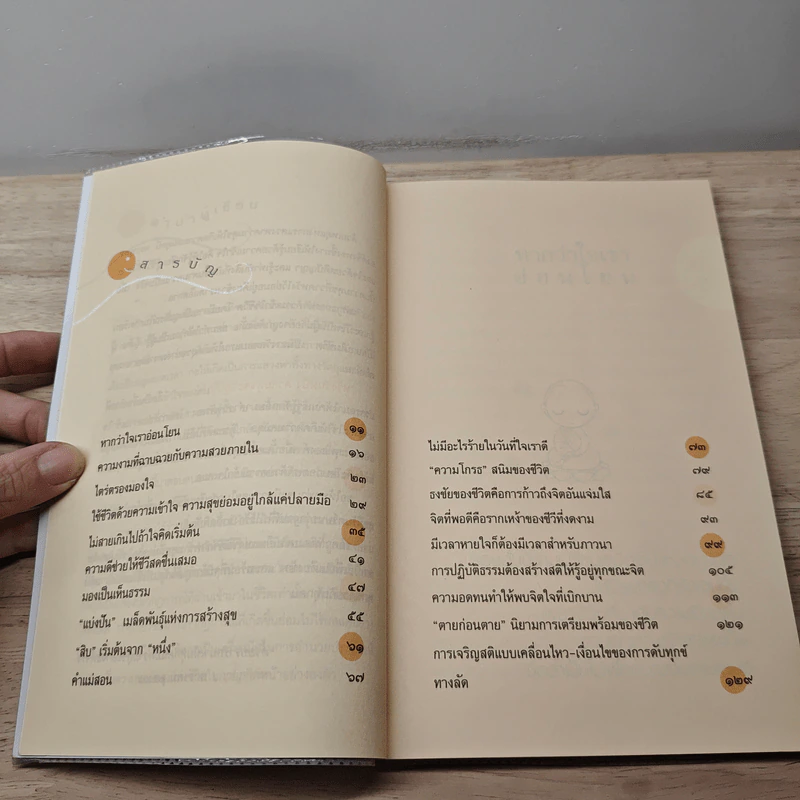 สารบัญ
หากว่าใจเราอ่อนโยน ๑๑
ความงามที่ฉาบฉวยกับความสวยภายใน ๑๖
ไตร่ตรองมองใจ ๒๓
ใช้ชีวิตด้วยความเข้าใจ ความสุขย่อมอยู่ใกล้แค่ปลายมือ ๒๙
ไม่สายเกินไปถ้าใจคิดเริ่มต้น ๓๕
ความดีช่วยให้ชีวีสดชื่นเสมอ ๔๑
มองเป็นเห็นธรรม ๔๗
“แบ่งปัน” เมล็ดพันธุ์แห่งการสร้างสุข ๕๕
“สิบ” เริ่มต้นจาก “หนึ่ง” ๖๑
คำแม่สอน ๖๗
ไม่มีอะไรร้ายในวันที่ใจเราดี ๗๓
“ความโกรธ” สนิมของชีวิต ๗๙
ธงชัยของชีวิตคือการก้าวถึงจิตอันแจ่มใส ๘๕
จิตที่พอดีคือรากเหง้าของชีวีที่งดงาม ๙๓
มีเวลาหายใจก็ต้องมีเวลาสำหรับภาวนา ๙๙
การปฏิบัติธรรมต้องสร้างสติให้รู้อยู่ทุกขณะจิต ๑๐๕
ความอดทนทำให้พบจิตใจที่เบิกบาน ๑๑๓
“ตายก่อนตาย” นิยามการเตรียมพร้อมของชีวิต ๑๒๑
การเจริญสติแบบเคลื่อนไหว-เงื่อนไขของการดับทุกข์
ทางลัด ๑๒๙